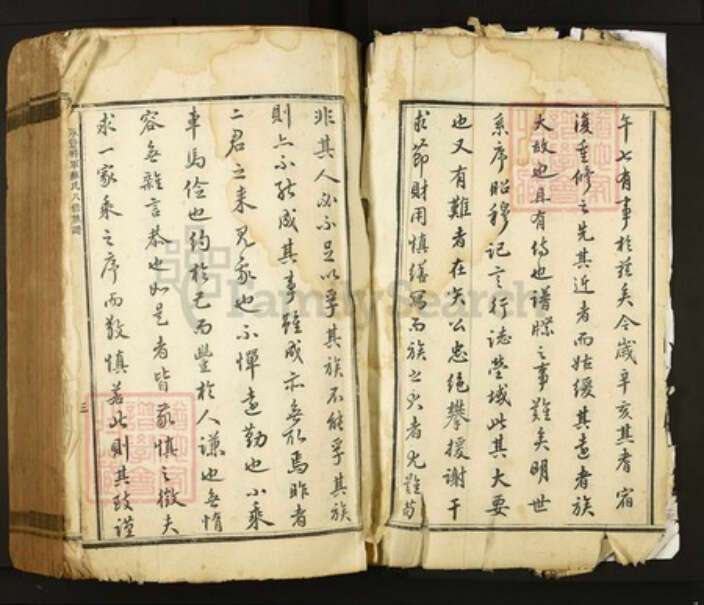 午七有事於茲矣今歲辛亥其耆宿
復重修之先其近者而姑緩其遠者族
大故也且有待也譜牒之事難矣明世
系序昭穆記言行誌塋域此其大要
也又有難者在矢公忠絕攀援謝干
求節財用慎繕寫而族之賢者尤難苟
非其人必不足以孚其族不能孚其族
則亦不能成其事雖成亦無取焉昨者
二君之來見家也不憚遠勤也不乘
車馬儉也約於己而豐於人謙也無惰
容無雜言恭也如是者皆敬慎之徵夫
求一家乘之序而敬慎若此則其致謹
三
FamilySearch